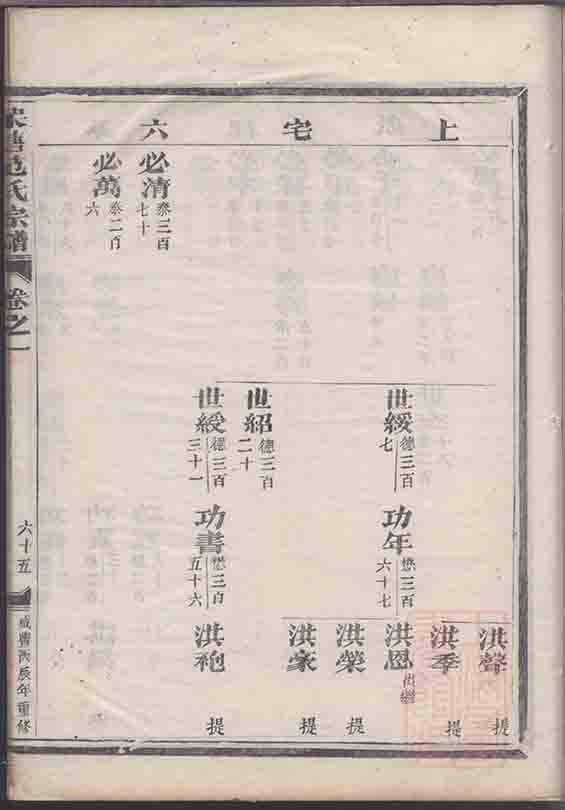 上宅六
洪聲 提
洪季 提
世綏 德三百七
功年 懋三百六十七
洪恩 出繼
洪榮 提
洪家 提
世紹 德三百二十
世綬 德三百三十一
功書 懋三百五十六
洪袍 提
必清 泰三百七十
必萬 泰二百六
宋塘范氏宗譜
卷之一
六十五
咸豐丙辰年重修